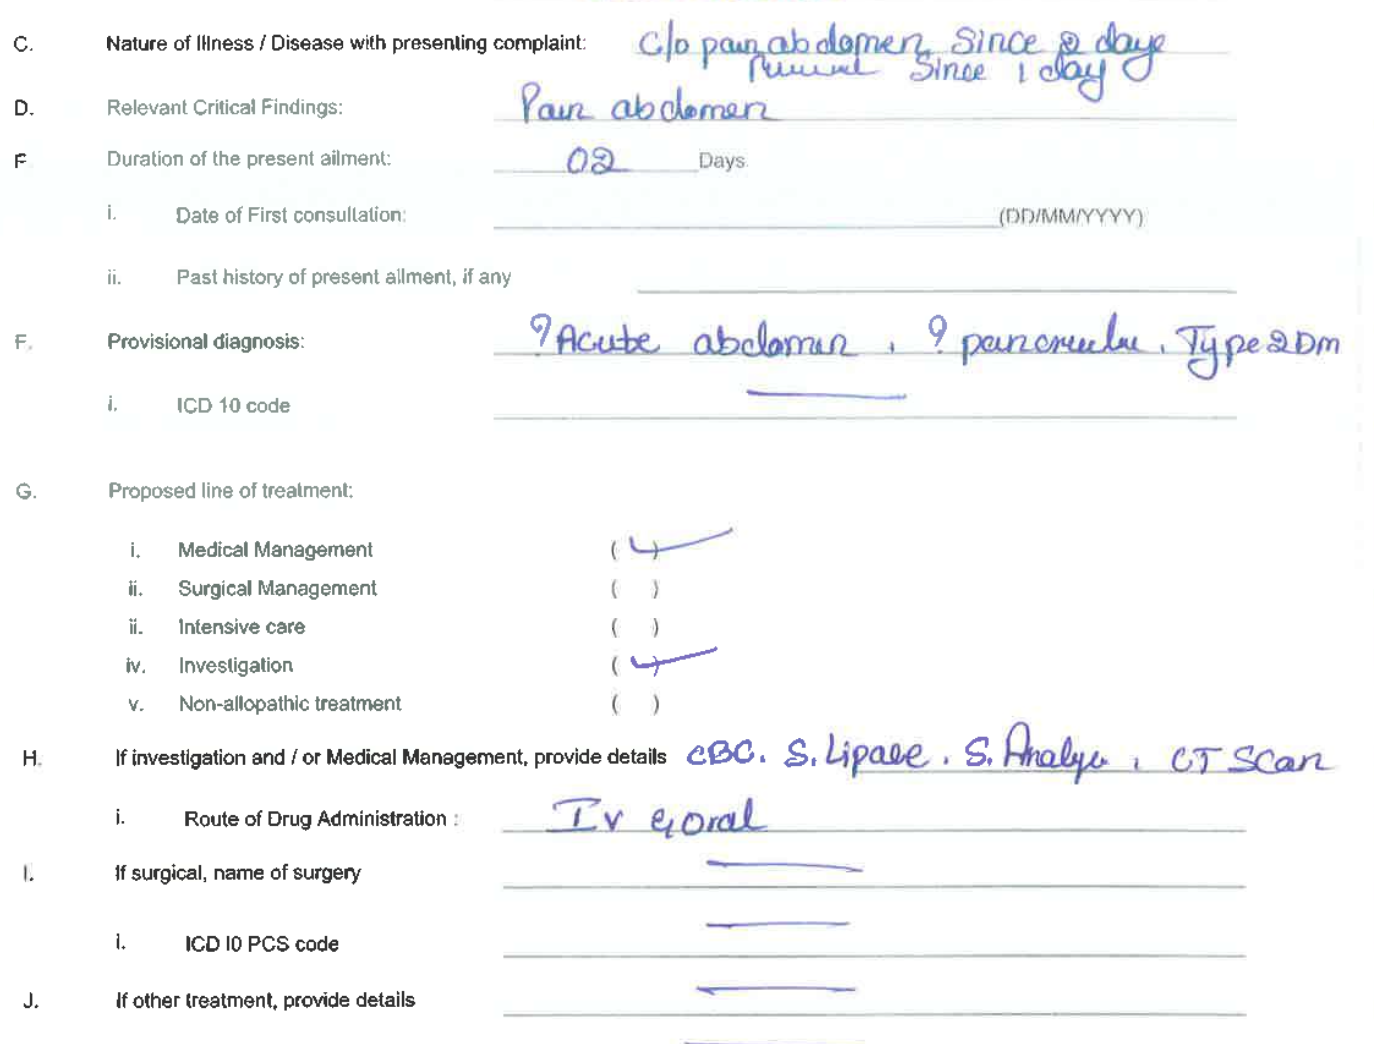 C. Nature of Illness / Disease with presenting complaint: C/o pain abdomen Since 2 days
Since 1 day
D. Relevant Critical Findings: Pain abdomen
F Duration of the present ailment: 02 Days
i. Date of First consultation: (DD/MM/YYYY)
ii. Past history of present ailment, if any
F. Provisional diagnosis: ? Acute abdomen, ? Type 2 Dm
i. ICD 10 code —
G. Proposed line of treatment:
i. Medical Management (✓)
ii. Surgical Management ( )
ii. Intensive care ( )
iv. Investigation (✓)
v. Non-allopathic treatment ( )
H. If investigation and / or Medical Management, provide details CBC, S. Lipase, S. CT Scan
i. Route of Drug Administration : Iv & oral
I. If surgical, name of surgery —
i. ICD I0 PCS code —
J. If other treatment, provide details —